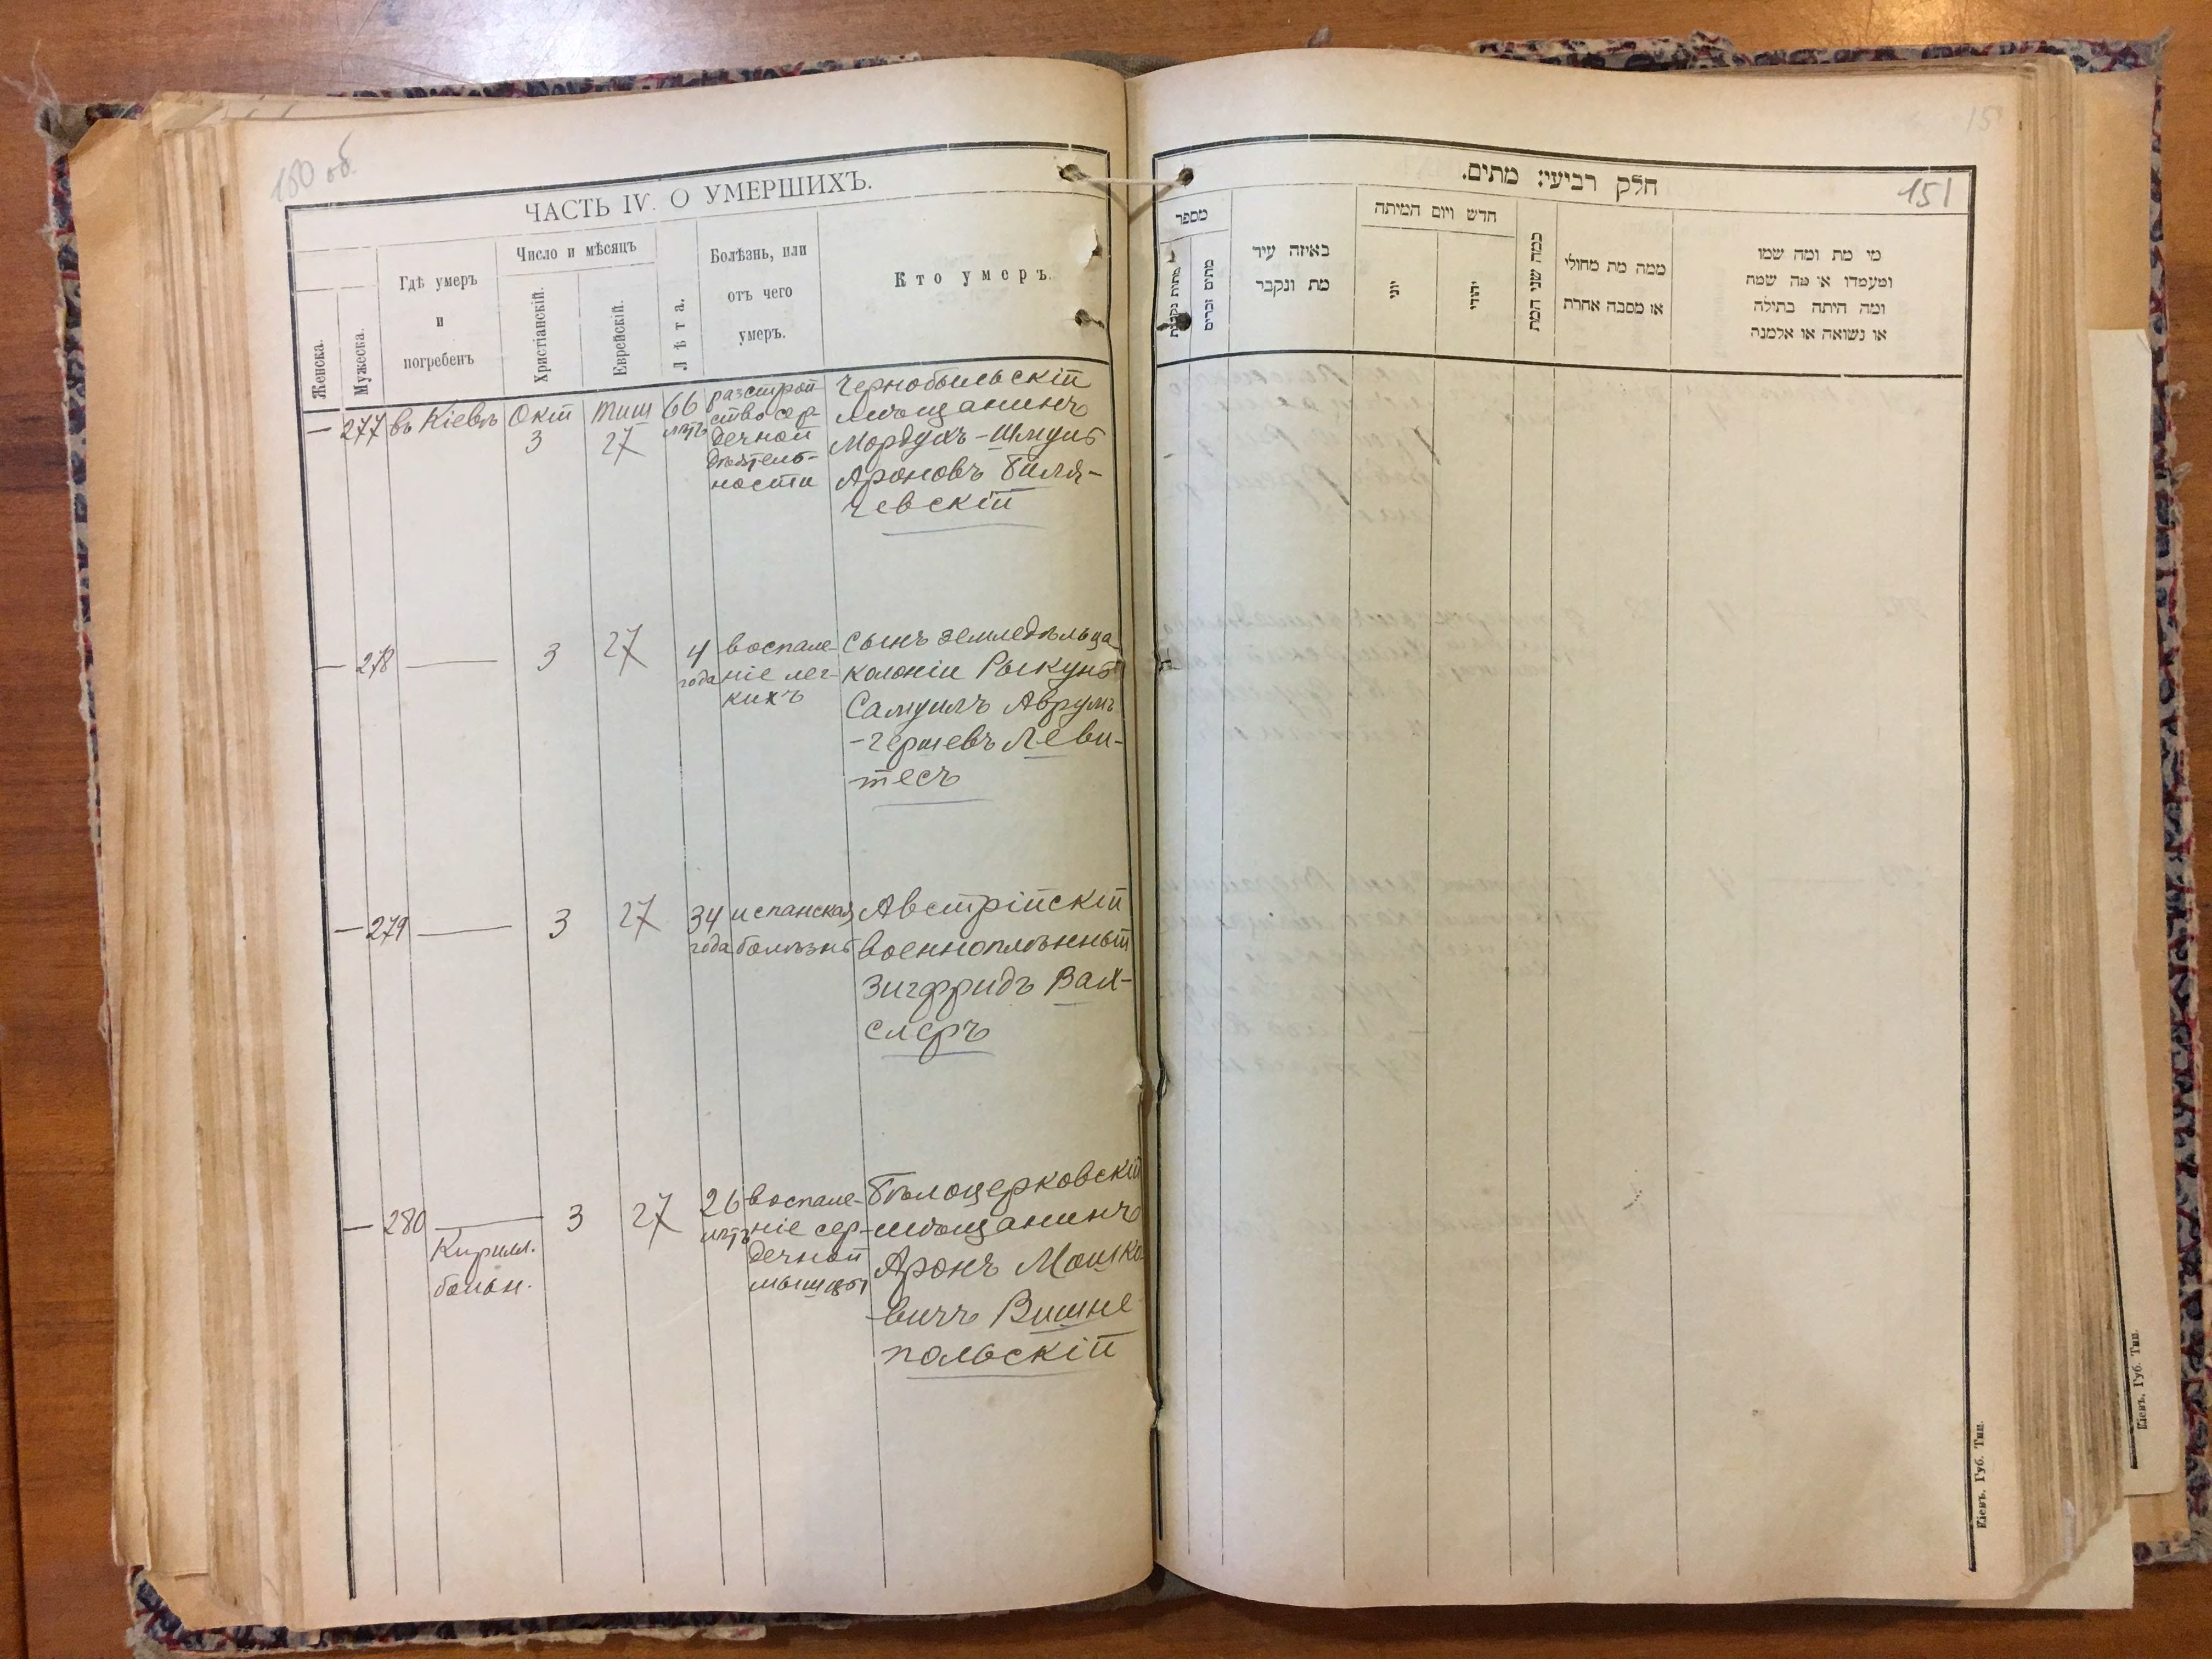 150 об.
ЧАСТЬ IV. О УМЕРШИХЪ.
Женска.
Мужеска.
Гдѣ умеръ
и
погребенъ
Число и мѣсяцъ
Христіанскій.
Еврейскій.
Лѣта.
Болѣзнь, или
отъ чего
умеръ.
Кто умеръ.
— 277 въ Кіевѣ Окт 3 Тиш 27 66 лѣтъ
разстрой-
ство сер-
дечной
дѣятель-
ности
Чернобыльскій
мѣщанинъ
Мордухъ-Шмуль
Ароновъ Биля-
чевскій
— 278 — 3 27 4 года
воспале-
ніе лег-
кихъ
Сынъ земледѣльца
колоніи Рыкунь
Самуилъ Аврумъ
-Гершевъ Леви-
тесъ
— 279 — 3 27 34 года
испанская
болѣзнь
Австрійскій
военноплѣнный
Зигфридъ Вах-
слеръ
— 280 — 3 27 26 лѣтъ
Кирилл.
больн.
воспале-
ніе сер-
дечной
мышцы
Бѣлоцерковскій
мѣщанинъ
Аронъ Мошко
вичъ Вишне
польскій
151
חלק רביעי: מתים.
מספר
מתות נקבות
מתים זכרים
באיזה עיר
מת ונקבר
חדש ויום המיתה
יוני
יהודי
כמה שני המת
ממה מת מחולי
או מסבה אחרת
מי מת ומה שמו
ומעמדו או מה שמה
ומה היתה בתולה
או נשואה או אלמנה
Кіевъ. Губ. Тип.
Кіевъ. Губ. Тип.